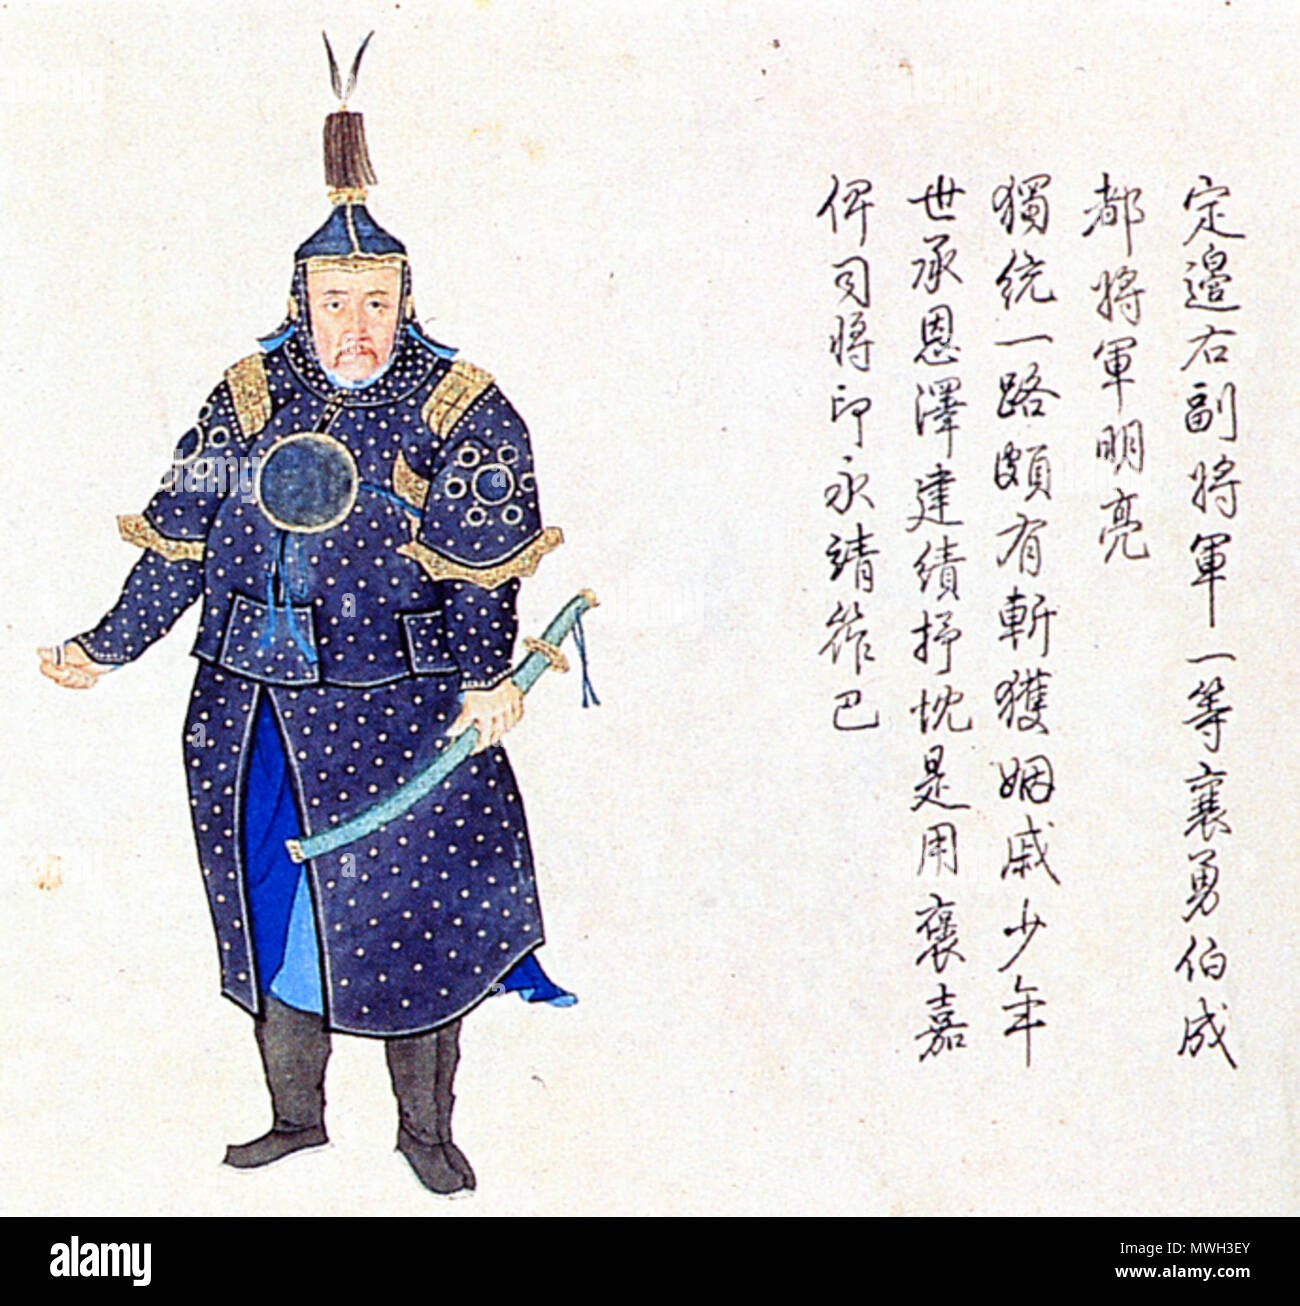 定邊右副將軍一等襄勇伯成
都將軍明亮
獨統一路頗有斬獲姻戚少年
世承恩澤建績抒忱是用褒嘉
俾司將印永靖筰巴
alamy
Image ID: MWH3EY
www.alamy.com